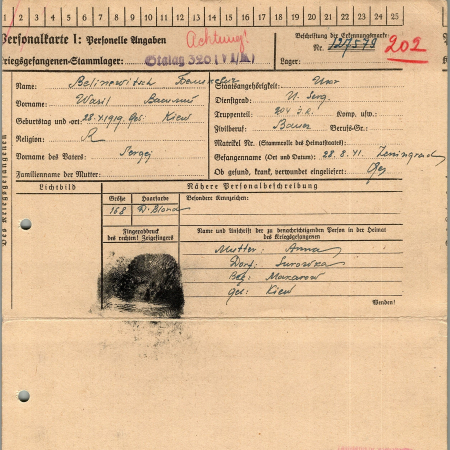 1 2 3 4 5 6 7 8 9 10 11 12 13 14 15 16 17 18 19 20 21 22 23 24 25
Personalkarte I: Personelle Angaben
Achtung!
Beschriftung der Erkennungsmarke
Nr. 127579 202
Kriegsgefangenen-Stammlager: Stalag 326 (VI/K)
Lager:
Des Kriegsgefangenen
Name: Belinowitsch
Vorname: Wasil
Geburtstag und -ort: 28.4.1919. Geb. Kiew
Religion: R
Vorname des Vaters: Sergej
Familienname der Mutter:
Staatsangehörigkeit:
Dienstgrad: U. Serg.
Truppenteil: 204 I.R. Komp. usw.:
Zivilberuf: Bauer Berufs-Gr.:
Matrikel Nr. (Stammrolle des Heimatstaates):
Gefangennahme (Ort und Datum): 28.8.41. Leningrad
Ob gesund, krank, verwundet eingeliefert: Ges
Lichtbild
Nähere Personalbeschreibung
Größe Haarfarbe
168 D. Blond
Besondere Kennzeichen:
Fingerabdruck
des rechten! Zeigefingers
Name und Anschrift der zu benachrichtigenden Person in der Heimat
des Kriegsgefangenen
Mutter: Anna
Dorf: Surowka
Bez: Makarow
Geb: Kiew
Wenden!